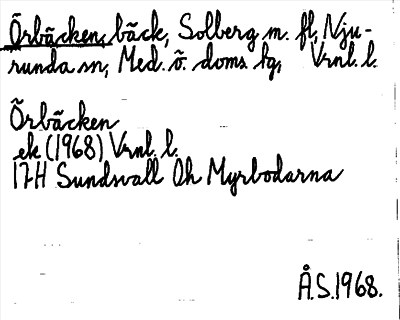 Örbäcken, bäck, Solberg m. fl, Nju-
runda sn, Med. ö. doms. hg, Vrnl. l.
Örbäcken
ek (1968) Vrnl. l.
17H Sundsvall 0h Myrbodarna
Å.S. 1968.